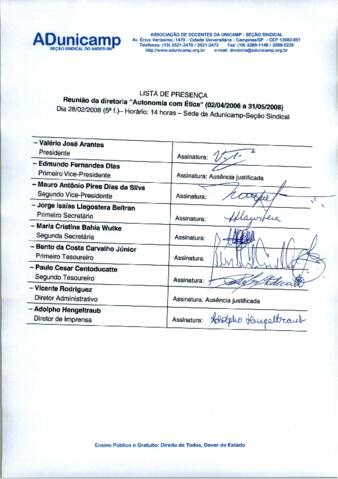 ADunicamp
SEÇÃO SINDICAL DO ANDES-SN
ASSOCIAÇÃO DE DOCENTES DA UNICAMP - SEÇÃO SINDICAL
Av. Érico Veríssimo, 1479 - Cidade Universitária - Campinas/SP - CEP 13083-851
Telefones: (19) 3521-2470 / 3521-2472 Fax: (19) 3289-1148 / 3289-5229
http://www.adunicamp.org.br e-mail: diretoria@adunicamp.org.br
LISTA DE PRESENÇA
Reunião da diretoria "Autonomia com Ética" (02/04/2006 a 31/05/2008)
Dia 28/02/2008 (5ª f.)– Horário: 14 horas – Sede da Adunicamp-Seção Sindical
– Valério José Arantes
Presidente Assinatura:
– Edmundo Fernandes Dias
Primeiro Vice-Presidente Assinatura: Ausência justificada
– Mauro Antônio Pires Dias da Silva
Segundo Vice-Presidente Assinatura:
– Jorge Isaías Llagostera Beltran
Primeiro Secretário Assinatura: Llagostera
– Maria Cristina Bahia Wutke
Segunda Secretária Assinatura:
– Bento da Costa Carvalho Júnior
Primeiro Tesoureiro Assinatura:
– Paulo Cesar Centoducatte
Segundo Tesoureiro Assinatura:
– Vicente Rodriguez
Diretor Administrativo Assinatura: Ausência justificada
– Adolpho Hengeltraub
Diretor de Imprensa Assinatura: Adolpho Hengeltraub
Ensino Público e Gratuito: Direito de Todos, Dever do Estado